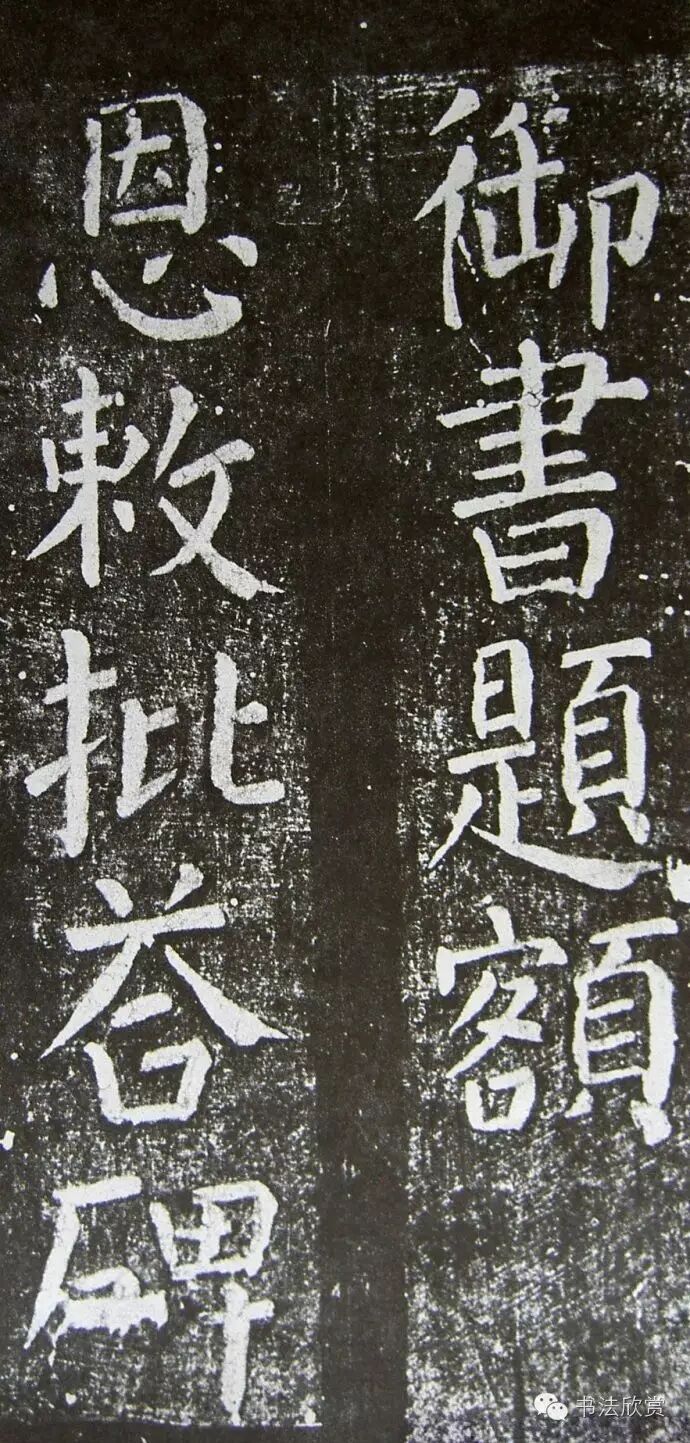 御書題額
恩敕批荅碑
书法欣赏